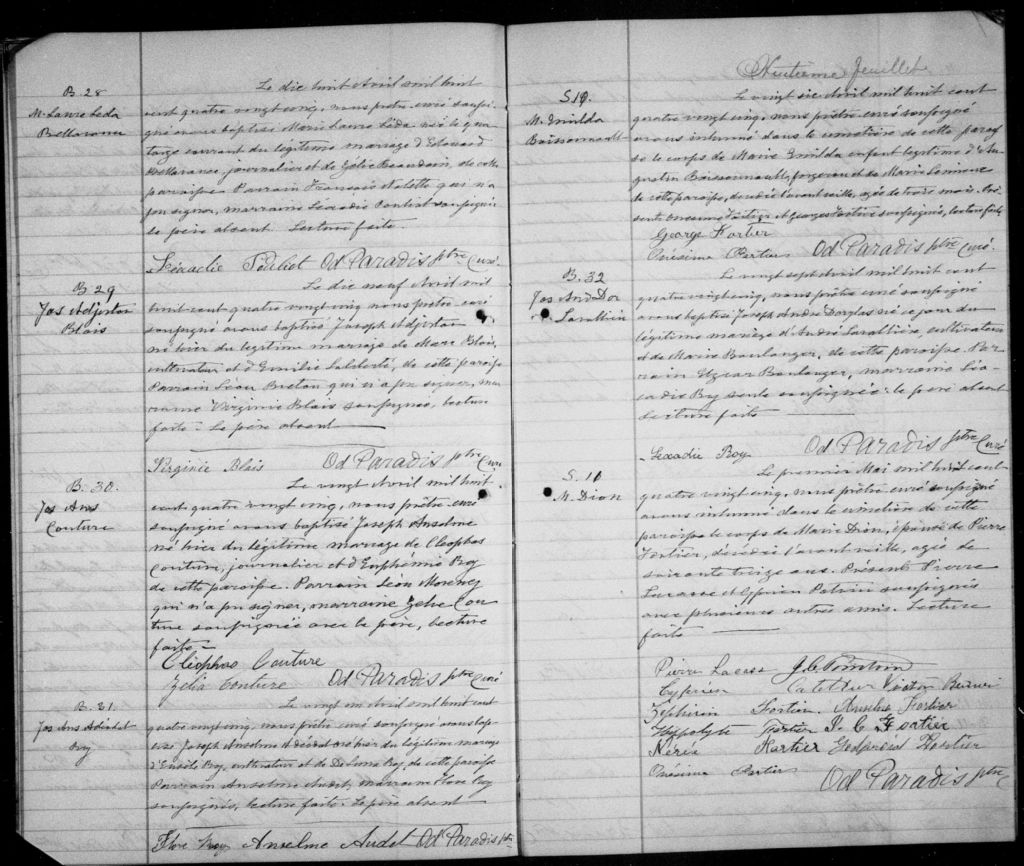 B. 28
M. Laure Leda
Bellavance
Le dix huit Avril mil huit
cent quatre vingt cinq, nous prêtre curé soussi-
gné avons baptisé Marie Laure Léda née le qua-
torze courant du légitime mariage d'Edouard
Bellavance, journalier et de Zélie Beaudoin, de cette
paroisse. Parrain François Nolette qui n'a
pu signer, marraine Léocadie soussignée
le père absent. Lecture faite.
Od Paradis ptre Curé
B. 29
Jos Adjutor
Blais
Le dix neuf Avril mil
huit cent quatre vingt cinq nous prêtre curé
soussigné avons baptisé Joseph Adjutor
né hier du légitime mariage de Marc Blais,
cultivateur et d'Emilie Laliberté, de cette paroisse
Parrain Léon Breton qui n'a pu signer, mar-
raine Virginie Blais soussignée, lecture
faite. Le père absent
Virginie Blais Od Paradis ptre Curé
B. 30.
Jos Ans
Couture
Le vingt Avril mil huit
cent quatre vingt cinq, nous prêtre curé
soussigné avons baptisé Joseph Anselme
né hier du légitime mariage de Cléophas
Couture, journalier et d'Euphémie Roy
de cette paroisse. Parrain Léon
qui n'a pu signer, marraine Zélie Cou-
ture soussignée avec le père, lecture
faite
Cléophas Couture
Zélia Couture Od Paradis ptre Curé
B. 31.
Jos Ans
Roy
Le vingt un Avril mil huit cent
quatre vingt cinq, nous prêtre curé soussigné avons bap-
tisé Joseph Anselme né hier du légitime mariage
Roy, cultivateur et de Roy, de cette paroisse
Parrain Anselme Audet, marraine Flore Roy
soussignés, lecture faite. Le père absent
Flore Roy Anselme Audet Od Paradis ptre
Huitième feuillet
S
M. Emilda
Boissonnault
Le vingt six Avril mil huit cent
quatre vingt cinq, nous prêtre curé soussigné
avons inhumé dans le cimetière de cette parois-
se le corps de Marie Emilda enfant légitime
Boissonnault, forgeron et de Marie Lemieux
de cette paroisse, décédée l'avant veille, agée de trois mois. Pré-
sents Onésime Fortier et George Fortier soussignés, lecture faite
George Fortier
Onésime Fortier Od Paradis ptre Curé.
B. 32
Jos And Dor
Le vingt sept Avril mil huit cent
quatre vingt cinq, nous prêtre curé soussigné
avons baptisé Joseph André né ce jour du
légitime mariage d'André cultivateur
et de Marie Boulanger, de cette paroisse. Par-
rain Boulanger, marraine Léo-
cadie Roy soussignée le père absent
lecture faite
Roy Od Paradis ptre Curé
S. 10
M. Dion
Le premier Mai mil huit cent
quatre vingt cinq, nous prêtre curé soussigné
avons inhumé dans le cimetière de cette
paroisse le corps de Marie Dion, épouse de Pierre
Fortier, décédée l'avant veille, agée de
soixante treize ans. Présents Pierre
Lacasse et Cyprien soussignés
avec plusieurs autres amis. Lecture
faite
Pierre Lacasse
Cyprien
Zéphirin Fortier. Anselme Fortier
Hypolyte Fortier J. C. Fortier
Nérée Fortier Fortier
Onésime Fortier
Od Paradis ptre